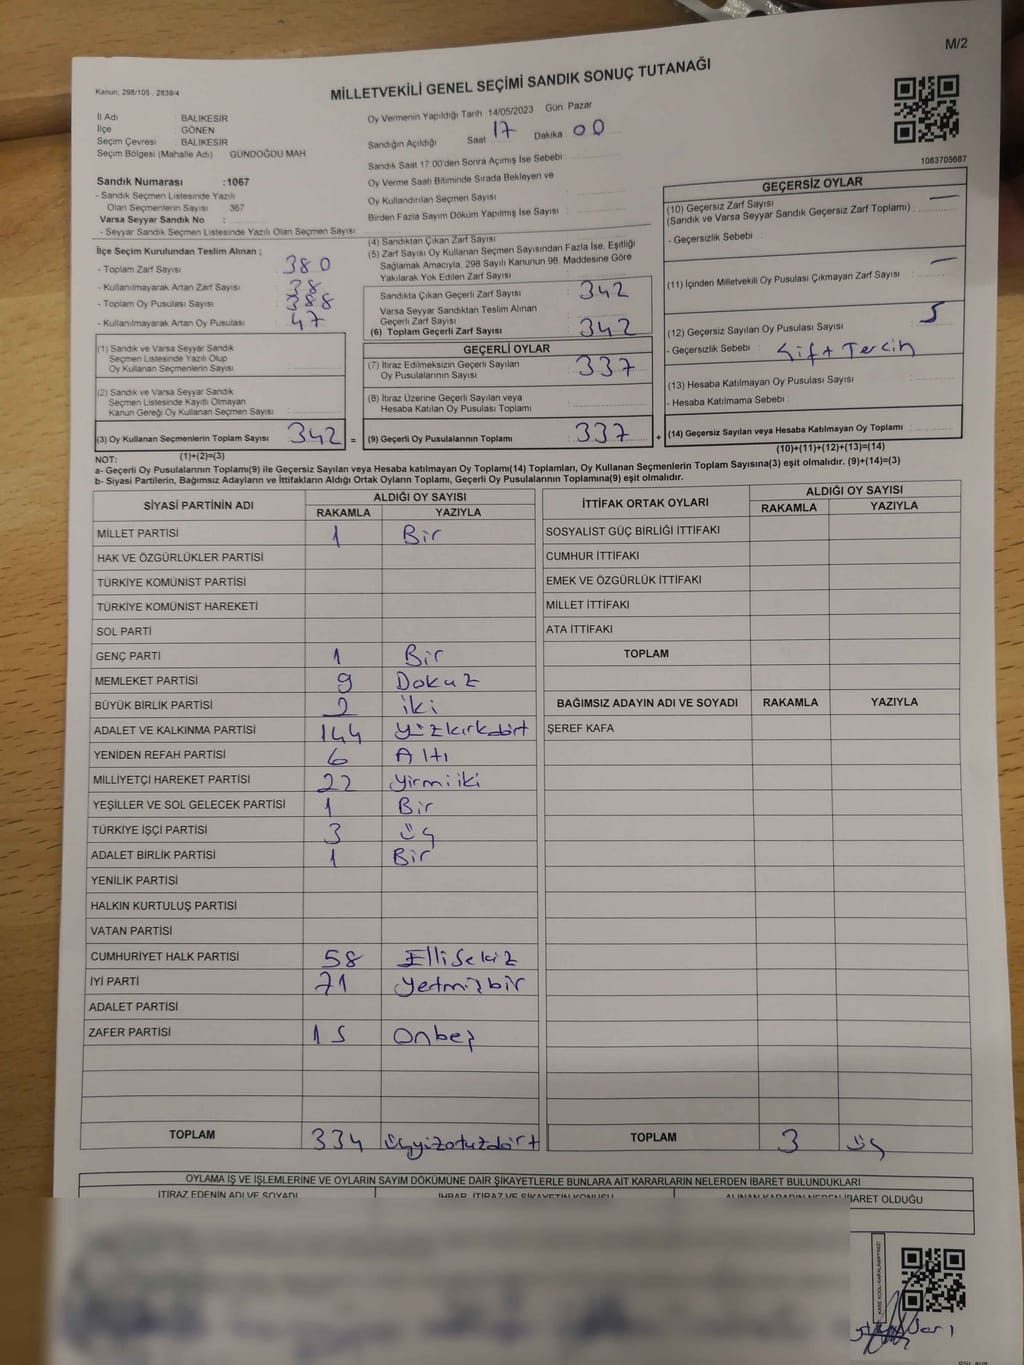 M/2
Kanun: 298/105 . 2839/4
MİLLETVEKİLİ GENEL SEÇİMİ SANDIK SONUÇ TUTANAĞI
İl Adı BALIKESİR
İlçe GÖNEN
Seçim Çevresi BALIKESİR
Seçim Bölgesi (Mahalle Adı) GÜNDOĞDU MAH.
Sandık Numarası :1067
- Sandık Seçmen Listesinde Yazılı
Olan Seçmenlerin Sayısı 367
Varsa Seyyar Sandık No :
- Seyyar Sandık Seçmen Listesinde Yazılı Olan Seçmen Sayısı
Oy Vermenin Yapıldığı Tarih 14/05/2023 Gün Pazar
Sandığın Açıldığı Saat 17 Dakika 00
Sandık Saat 17:00'den Sonra Açılmış İse Sebebi :
Oy Verme Saati Bitiminde Sırada Bekleyen ve
Oy Kullandırılan Seçmen Sayısı :
Birden Fazla Sayım Döküm Yapılmış İse Sayısı :
1083705687
İlçe Seçim Kurulundan Teslim Alınan ;
- Toplam Zarf Sayısı 380
- Kullanılmayarak Artan Zarf Sayısı 38
- Toplam Oy Pusulası Sayısı 388
- Kullanılmayarak Artan Oy Pusulası 47
(1) Sandık ve Varsa Seyyar Sandık
Seçmen Listesinde Yazılı Olup
Oy Kullanan Seçmenlerin Sayısı
(2) Sandık ve Varsa Seyyar Sandık
Seçmen Listesinde Kayıtlı Olmayan
Kanun Gereği Oy Kullanan Seçmen Sayısı
(3) Oy Kullanan Seçmenlerin Toplam Sayısı 342 =
(1)+(2)=(3)
(4) Sandıktan Çıkan Zarf Sayısı
(5) Zarf Sayısı Oy Kullanan Seçmen Sayısından Fazla İse, Eşitliği
Sağlamak Amacıyla, 298 Sayılı Kanunun 98. Maddesine Göre
Yakılarak Yok Edilen Zarf Sayısı
Sandıkta Çıkan Geçerli Zarf Sayısı : 342
Varsa Seyyar Sandıktan Teslim Alınan
Geçerli Zarf Sayısı :
(6) Toplam Geçerli Zarf Sayısı : 342
GEÇERLİ OYLAR
(7) İtiraz Edilmeksizin Geçerli Sayılan
Oy Pusulalarının Sayısı : 337
(8) İtiraz Üzerine Geçerli Sayılan veya
Hesaba Katılan Oy Pusulası Toplamı :
(9) Geçerli Oy Pusulalarının Toplamı : 337 +
GEÇERSİZ OYLAR
(10) Geçersiz Zarf Sayısı : —
(Sandık ve Varsa Seyyar Sandık Geçersiz Zarf Toplamı)
- Geçersizlik Sebebi :
(11) İçinden Milletvekili Oy Pusulası Çıkmayan Zarf Sayısı : —
(12) Geçersiz Sayılan Oy Pusulası Sayısı : 5
- Geçersizlik Sebebi : Çift Tercih
(13) Hesaba Katılmayan Oy Pusulası Sayısı :
- Hesaba Katılmama Sebebi :
(14) Geçersiz Sayılan veya Hesaba Katılmayan Oy Toplamı :
(10)+(11)+(12)+(13)=(14)
NOT:
a- Geçerli Oy Pusulalarının Toplamı(9) ile Geçersiz Sayılan veya Hesaba katılmayan Oy Toplamı(14) Toplamları, Oy Kullanan Seçmenlerin Toplam Sayısına(3) eşit olmalıdır. (9)+(14)=(3)
b- Siyasi Partilerin, Bağımsız Adayların ve İttifakların Aldığı Ortak Oyların Toplamı, Geçerli Oy Pusulalarının Toplamına(9) eşit olmalıdır.
SİYASİ PARTİNİN ADI ALDIĞI OY SAYISI
RAKAMLA YAZIYLA
MİLLET PARTİSİ 1 Bir
HAK VE ÖZGÜRLÜKLER PARTİSİ
TÜRKİYE KOMÜNİST PARTİSİ
TÜRKİYE KOMÜNİST HAREKETİ
SOL PARTİ
GENÇ PARTİ 1 Bir
MEMLEKET PARTİSİ 9 Dokuz
BÜYÜK BİRLİK PARTİSİ 2 iki
ADALET VE KALKINMA PARTİSİ 144 yüzkırkdört
YENİDEN REFAH PARTİSİ 6 Altı
MİLLİYETÇİ HAREKET PARTİSİ 22 yirmiiki
YEŞİLLER VE SOL GELECEK PARTİSİ 1 Bir
TÜRKİYE İŞÇİ PARTİSİ 3 üç
ADALET BİRLİK PARTİSİ 1 Bir
YENİLİK PARTİSİ
HALKIN KURTULUŞ PARTİSİ
VATAN PARTİSİ
CUMHURİYET HALK PARTİSİ 58 Ellisekiz
İYİ PARTİ 71 yetmişbir
ADALET PARTİSİ
ZAFER PARTİSİ 15 Onbeş
TOPLAM 334 üçyüzotuzdört
İTTİFAK ORTAK OYLARI ALDIĞI OY SAYISI
RAKAMLA YAZIYLA
SOSYALİST GÜÇ BİRLİĞİ İTTİFAKI
CUMHUR İTTİFAKI
EMEK VE ÖZGÜRLÜK İTTİFAKI
MİLLET İTTİFAKI
ATA İTTİFAKI
TOPLAM
BAĞIMSIZ ADAYIN ADI VE SOYADI RAKAMLA YAZIYLA
ŞEREF KAFA
TOPLAM 3 üç
OYLAMA İŞ VE İŞLEMLERİNE VE OYLARIN SAYIM DÖKÜMÜNE DAİR ŞİKAYETLERLE BUNLARA AİT KARARLARIN NELERDEN İBARET BULUNDUKLARI
İTİRAZ EDENİN ADI VE SOYADI İHBAR, İTİRAZ VE ŞİKAYETİN KONUSU ALINAN KARARIN NEDEN İBARET OLDUĞU